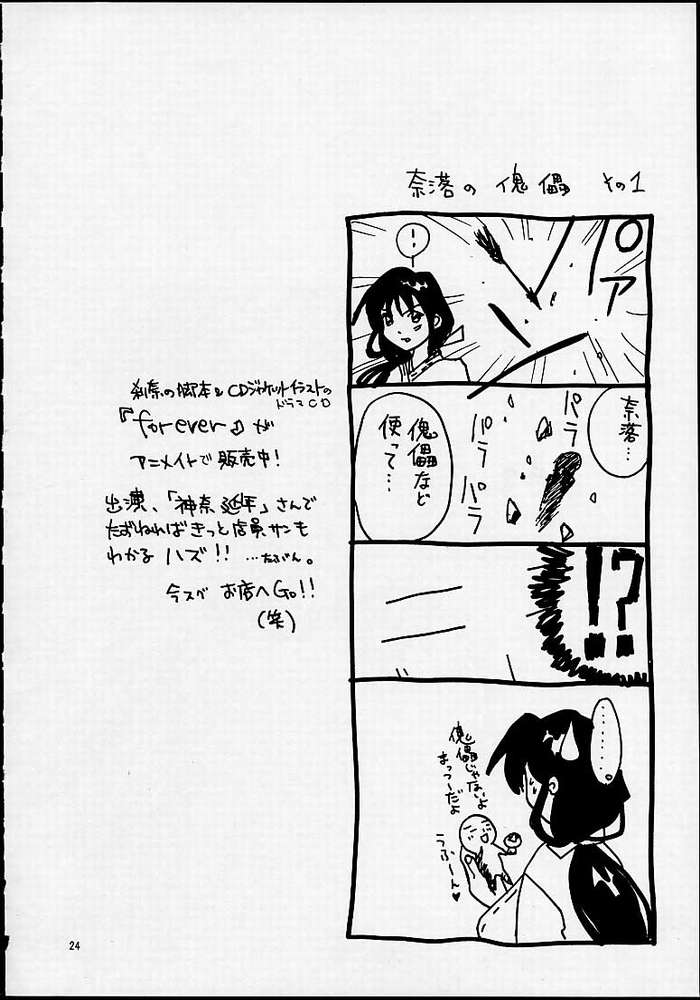 奈落の傀儡 その1
！
パァ
奈落…
パラ
パラ
パラ
傀儡など
使って…
!?
………
傀儡じゃないよ
まっつーだよ
うふーん♥
刹奈の脚本&CDジャケットイラストの
ドラマCD
『forever♪』が
アニメイトで販売中！
出演、「神奈延年」さんで
たずねればきっと店員サンも
わかるハズ!! …たぶん。
今スグ お店へGo!!
(笑)
24